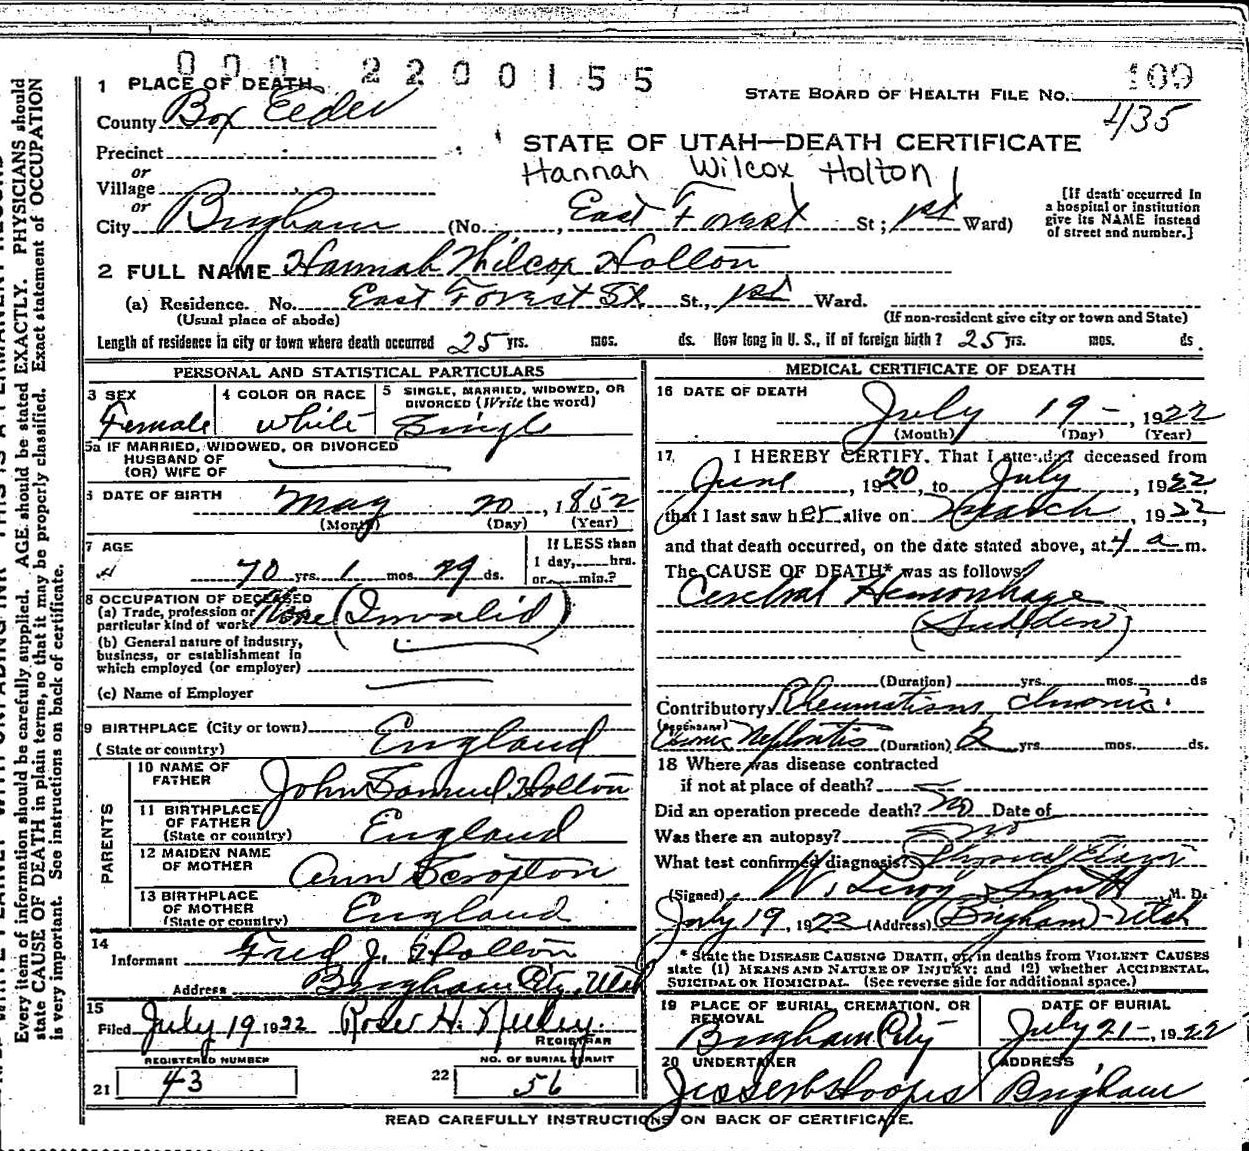 000 2200155
109
1 PLACE OF DEATH
STATE BOARD OF HEALTH FILE No.
435
County Box Elder
STATE OF UTAH—DEATH CERTIFICATE
Precinct
Hannah Wilcox Holton
or
Village
or
City Brigham (No. , East Forest St; 1st Ward)
[If death occurred in
a hospital or institution
give its NAME instead
of street and number.]
2 FULL NAME Hannah Wilcox Holton
(a) Residence. No. East Forest St. St., 1st Ward.
(Usual place of abode) (If non-resident give city or town and State)
Length of residence in city or town where death occurred 25 yrs. mos. ds. How long in U. S., if of foreign birth? 25 yrs. mos. ds.
PERSONAL AND STATISTICAL PARTICULARS
3 SEX Female
4 COLOR OR RACE white
5 SINGLE, MARRIED, WIDOWED, OR
DIVORCED (Write the word)
Single
5a IF MARRIED, WIDOWED, OR DIVORCED
HUSBAND OF
(OR) WIFE OF
6 DATE OF BIRTH May 20, 1852
(Month) (Day) (Year)
7 AGE
70 yrs. 1 mos. 29 ds.
If LESS than
1 day, hrs.
or min.?
8 OCCUPATION OF DECEASED
(a) Trade, profession or
particular kind of work None (Invalid)
(b) General nature of industry,
business, or establishment in
which employed (or employer)
(c) Name of Employer
9 BIRTHPLACE (City or town)
(State or country) England
PARENTS
10 NAME OF
FATHER John Samuel Holton
11 BIRTHPLACE
OF FATHER
(State or country) England
12 MAIDEN NAME
OF MOTHER Ann Scropton
13 BIRTHPLACE
OF MOTHER
(State or country) England
14
Informant Fred J. Holton
Address Brigham City, Utah
15
Filed July 19 1922 Roser H. Neeley.
REGISTRAR
REGISTERED NUMBER
21 43
NO. OF BURIAL PERMIT
22 56
MEDICAL CERTIFICATE OF DEATH
16 DATE OF DEATH
July 19 -, 1922
(Month) (Day) (Year)
17 I HEREBY CERTIFY, That I attended deceased from
June, 1920, to July, 1922
that I last saw her alive on March, 1922,
and that death occurred, on the date stated above, at 4 a m.
The CAUSE OF DEATH* was as follows:
Cerebral Hemorrhage
(Sudden)
(Duration) yrs. mos. ds
Contributory Rheumatism chronic.
(SECONDARY)
Chronic Nephritis (Duration) 2 yrs. mos. ds.
18 Where was disease contracted
if not at place of death?
Did an operation precede death? No Date of
Was there an autopsy? No
What test confirmed diagnosis? Physical Exam
(Signed) W. Leroy Smith M. D.
July 19, 1922 (Address) (Brigham) - Utah
* State the DISEASE CAUSING DEATH, or, in deaths from VIOLENT CAUSES
state (1) MEANS AND NATURE OF INJURY; and (2) whether ACCIDENTAL,
SUICIDAL OR HOMICIDAL. (See reverse side for additional space.)
19 PLACE OF BURIAL, CREMATION, OR
REMOVAL
Brigham City
DATE OF BURIAL
July 21-, 1922
20 UNDERTAKER
Hoopes
ADDRESS
Brigham
READ CAREFULLY INSTRUCTIONS ON BACK OF CERTIFICATE.
Every item of information should be carefully supplied. AGE should be stated EXACTLY. PHYSICIANS should
state CAUSE OF DEATH in plain terms, so that it may be properly classified. Exact statement of OCCUPATION
is very important. See instructions on back of certificate.